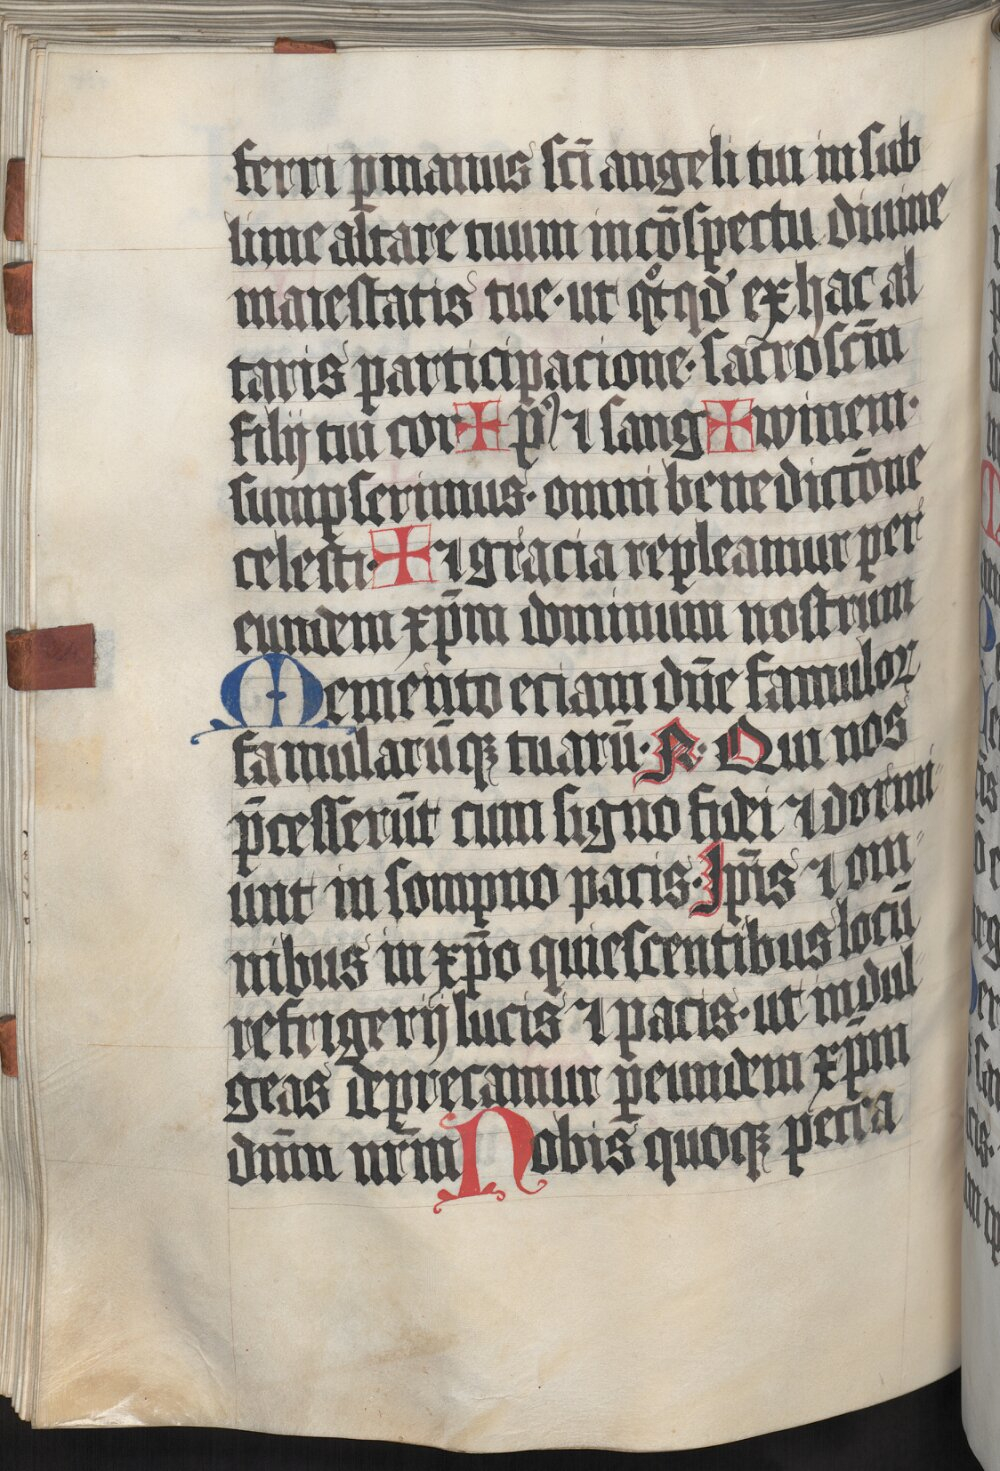 ferri p̲manus sc̄i angeli tui in sub
lime altare tuum in cōspectu diuine
maiestatis tue· ut qͦtqd' ex hac al
taris participacione· sacrosc̄m̄
filij tui cor✠p̱ꝰ ⁊ sang✠winem·
sumpserimus· omni benedictōne
celesti·✠⁊ gracia repleamur per
eundem xp̄m dominum nostrum
Memento eciam dn̄e famuloꝝ
famularūqꝫ tuarū· N· Qui nos
p̄cesserūt cum signo fidei ⁊ dormi
unt in sompno pacis· Ip̄is ⁊ om
nibus in xp̄o quiescentibus locū
refrigerij lucis ⁊ pacis· ut indul
geas deprecamur ꝑeundem xp̄m
dn̄m nr̄m Nobis quoqꝫ pecca